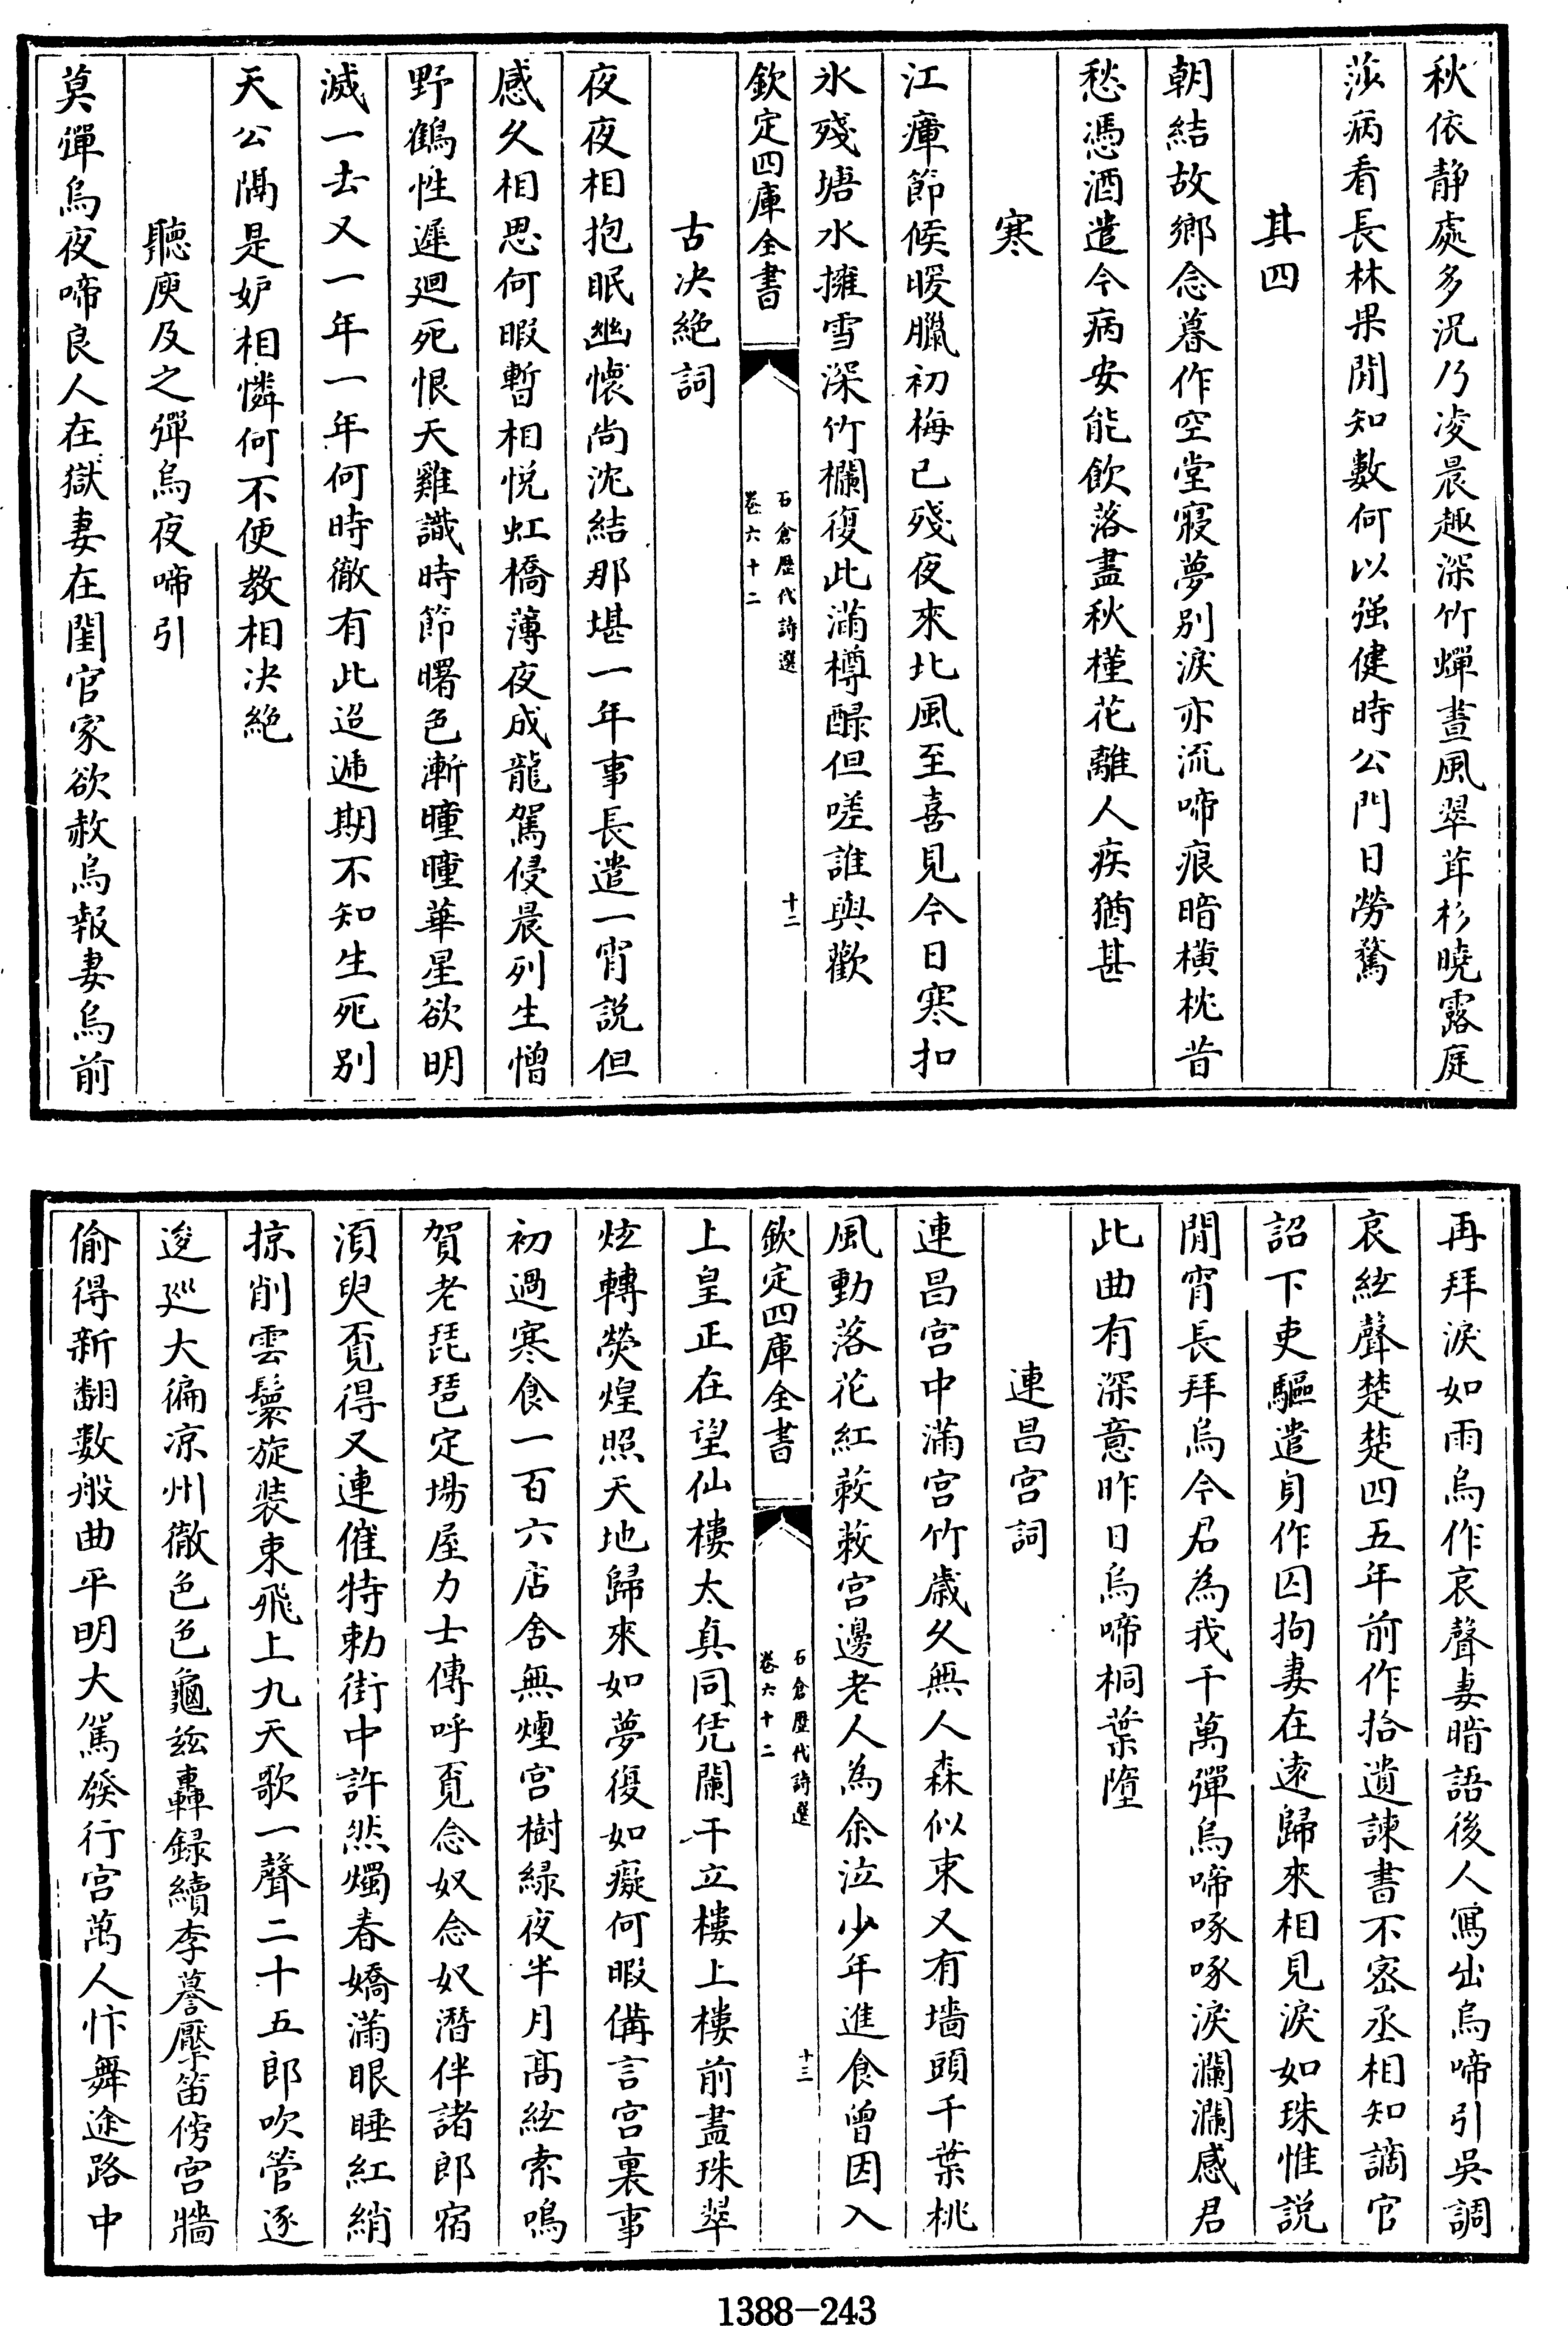 秋依靜處多況乃凌晨趣深竹蟬晝風翠茸杉曉露庭
莎病看長林果閒知數何以强健時公門日勞騖
其四
朝結故鄉念暮作空堂寢夢别淚亦流啼痕暗横枕昔
愁憑酒遣今病安能飲落盡秋槿花離人疾猶甚
寒
江瘴節候暖臘初梅已殘夜來北風至喜見今日寒扣
氷殘塘水擁雪深竹欄復此滿樽醁但嗟誰與歡
欽定四庫全書
石倉歴代詩選
卷六十二
十二
古决絶詞
夜夜相抱眠幽懷尚沈結那堪一年事長遣一宵説但
感久相思何暇暫相悦虹橋薄夜成龍駕侵晨列生憎
野鶴性遲廻死恨天雞識時節曙色漸曈曈華星欲明
滅一去又一年一年何時徹有此迢遞期不知生死别
天公隔是妒相憐何不便教相决絶
聽庾及之彈烏夜啼引
莫彈烏夜啼良人在獄妻在閨官家欲赦烏報妻烏前
再拜淚如雨烏作哀聲妻暗語後人寫出烏啼引吳調
哀絃聲楚楚四五年前作拾遺諫書不密丞相知謫官
詔下吏驅遣身作囚拘妻在遠歸來相見淚如珠惟説
閒宵長拜烏今君為我千萬彈烏啼啄啄淚瀾瀾感君
此曲有深意昨日烏啼桐葉墮
連昌宫詞
連昌宫中滿宫竹歲久無人森似束又有墻頭千葉桃
風動落花紅蔌蔌宫邊老人為余泣少年進食曾因入
欽定四庫全書
石倉歴代詩選
卷六十二
十三
上皇正在望仙樓太真同凭闌干立樓上樓前盡珠翠
炫轉熒煌照天地歸來如夢復如癡何暇備言宫裏事
初過寒食一百六店舍無煙宫樹緑夜半月高絃索鳴
賀老琵琶定場屋力士傳呼覓念奴念奴潛伴諸郎宿
須臾覓得又連催特勅街中許然燭春嬌滿眼睡紅綃
掠削雲鬟旋裝束飛上九天歌一聲二十五郎吹管逐
逡巡大徧凉州徹色色龜兹轟録續李謩擪笛傍宫牆
偷得新翻數般曲平明大駕發行宫萬人忭舞途路中
1388-243